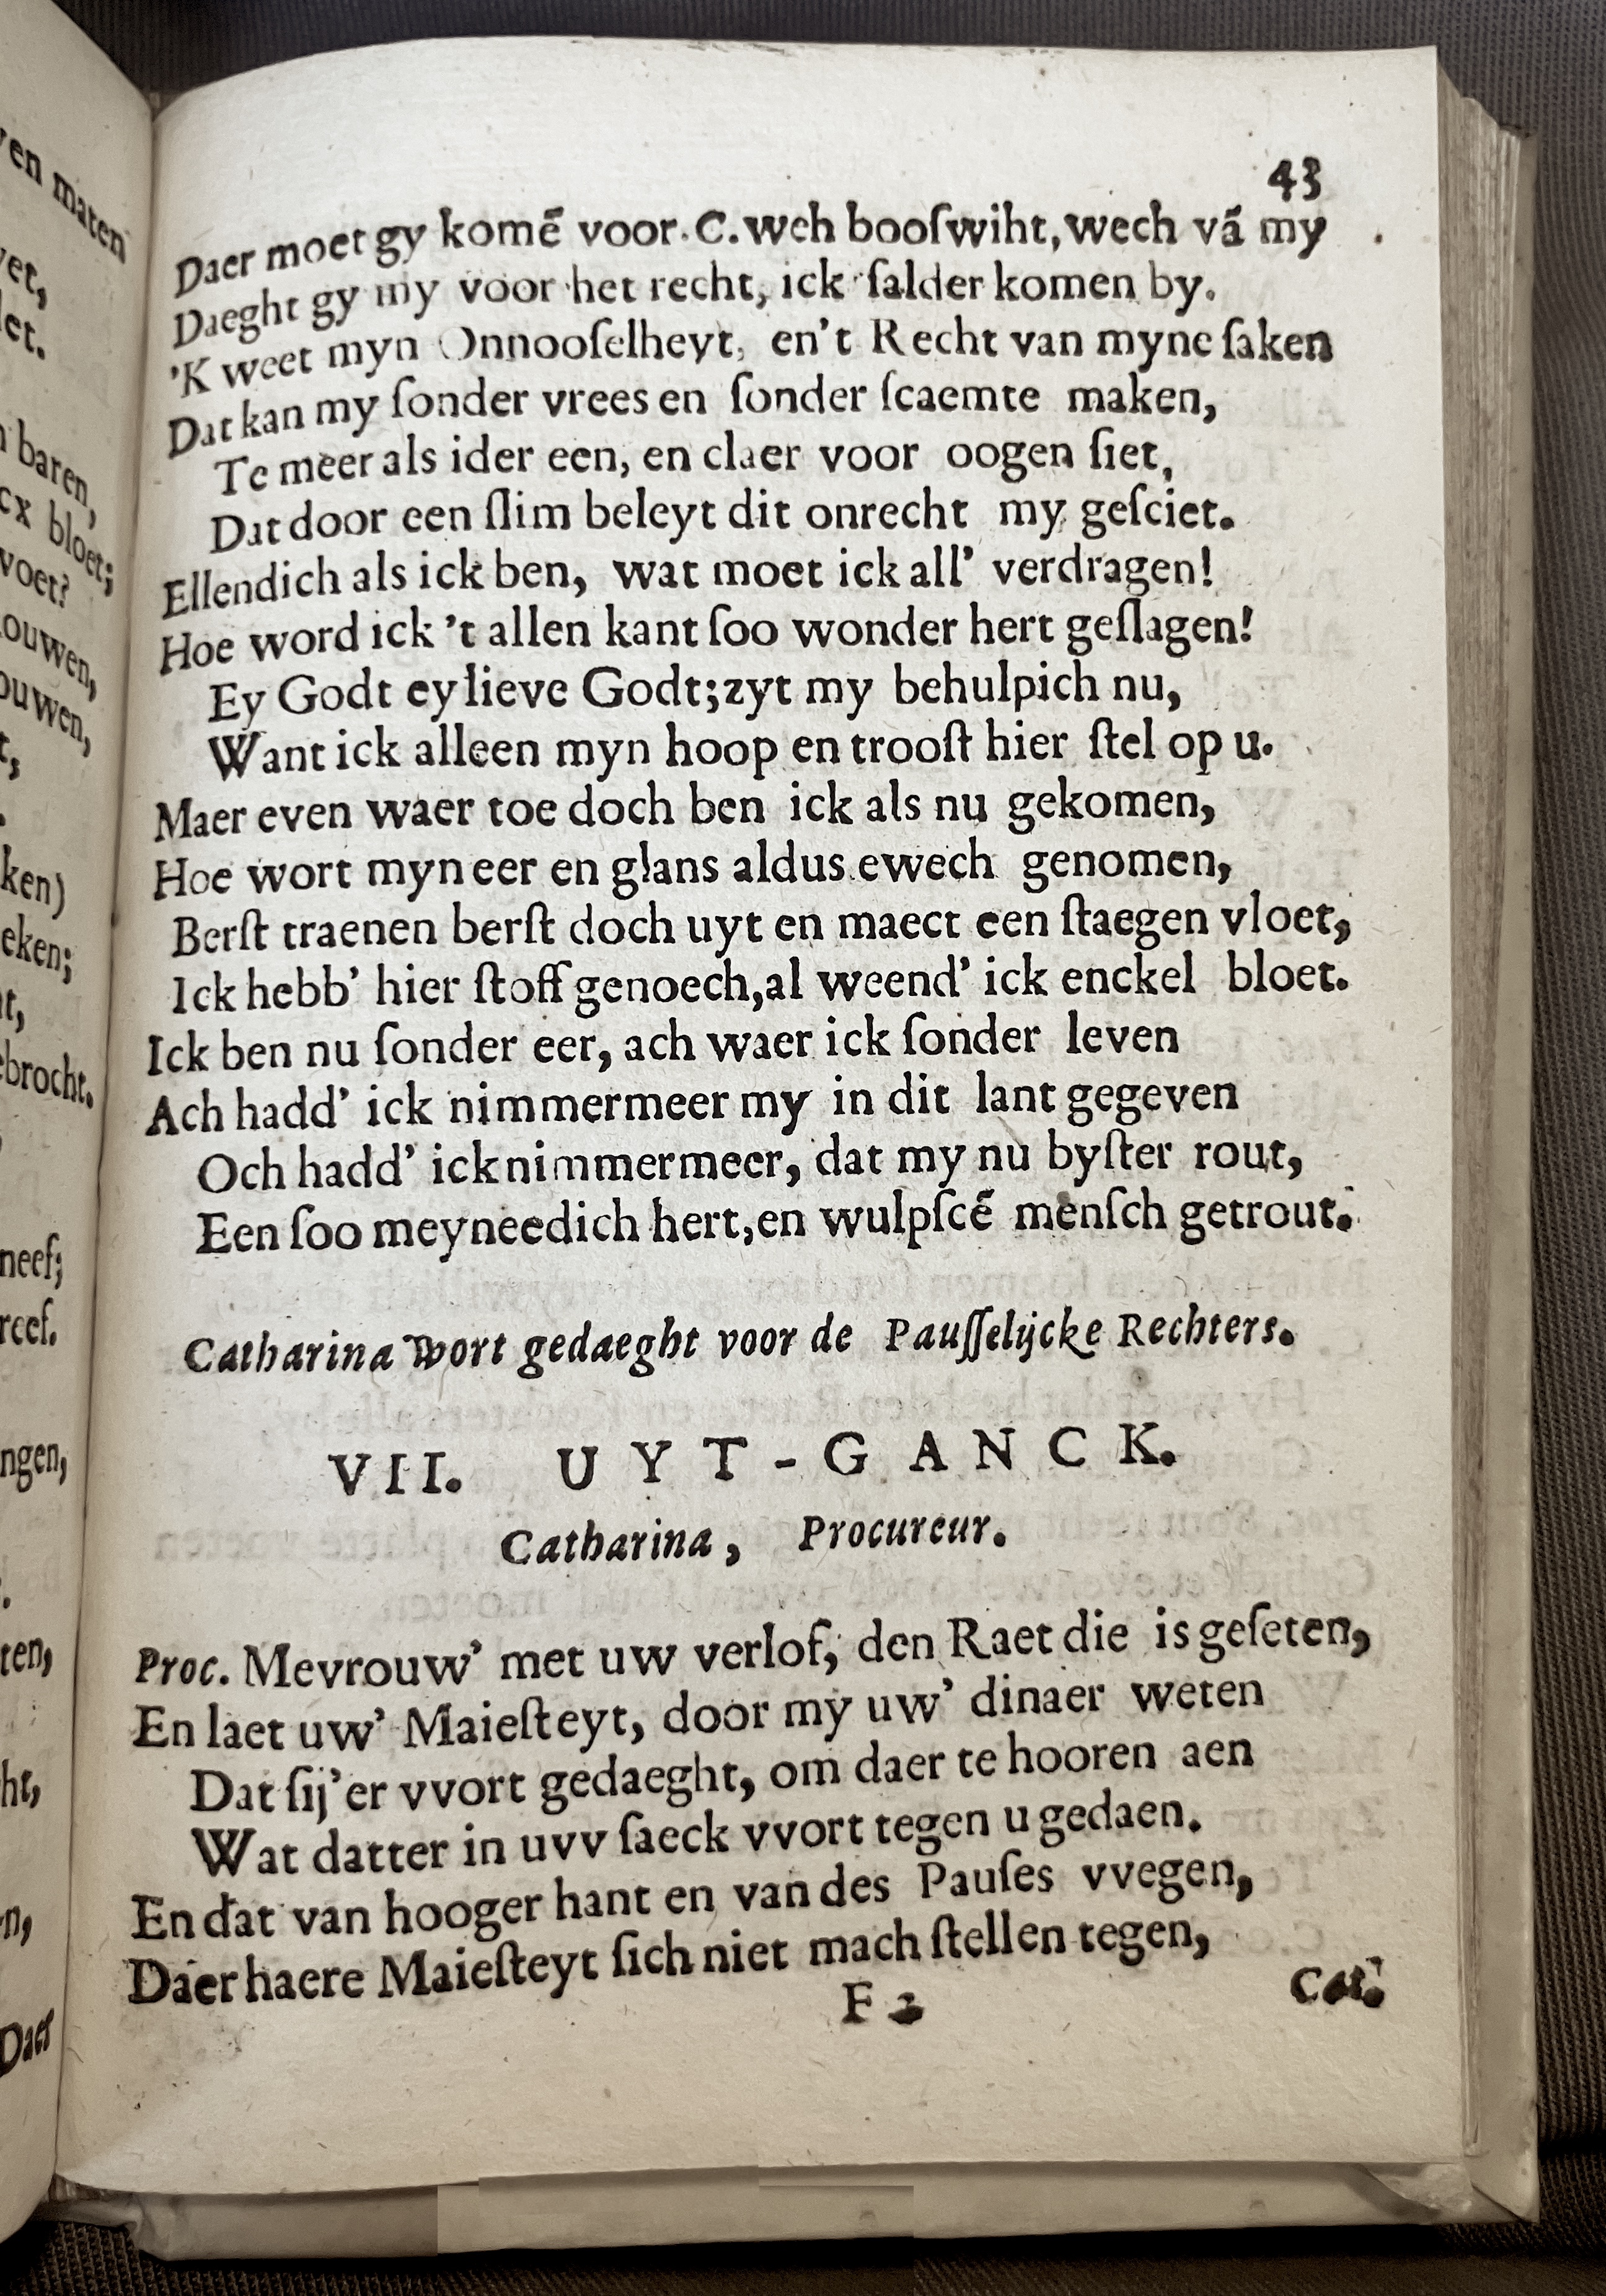 43
Daer moet gy komē voor. C. weh booſwiht, wech vā my
Daeght gy my voor het recht, ick ſalder komen by.
'K weet myn Onnooſelheyt, en't Recht van myne ſaken
Dat kan my ſonder vrees en ſonder ſcaemte maken,
Te meer als ider een, en claer voor oogen ſiet,
Dat door een ſlim beleyt dit onrecht my geſciet.
Ellendich als ick ben, wat moet ick all' verdragen!
Hoe word ick 't allen kant ſoo wonder hert geſlagen!
Ey Godt ey lieve Godt; zyt my behulpich nu,
Want ick alleen myn hoop en trooſt hier ſtel op u.
Maer even waer toe doch ben ick als nu gekomen,
Hoe wort myn eer en glans aldus ewech genomen,
Berſt traenen berſt doch uyt en maect een ſtaegen vloet,
Ick hebb' hier ſtoff genoech, al weend' ick enckel bloet.
Ick ben nu ſonder eer, ach waer ick ſonder leven
Ach hadd' ick nimmermeer my in dit lant gegeven
Och hadd' ick nimmermeer, dat my nu byſter rout,
Een ſoo meyneedich hert, en wulpſcē menſch getrout.
Catharina wort gedaeght voor de Pauſſelijcke Rechters.
VII. UYT-GANCK.
Catharina, Procureur.
Proc. Mevrouw' met uw verlof, den Raet die is geſeten,
En laet uw' Maieſteyt, door my uw' dinaer weten
Dat ſij'er vvort gedaeght, om daer te hooren aen
Wat datter in uvv ſaeck vvort tegen u gedaen.
En dat van hooger hant en van des Pauſes vvegen,
Daer haere Maieſteyt ſich niet mach ſtellen tegen,
F 2 Cat.
ven maten
let.
baren,
bloet;
voet?
ouwen,
ouwen,
ken)
eken;
ebrocht.
neef;
reef.
ngen,
ten,
ht,
n,
Daer